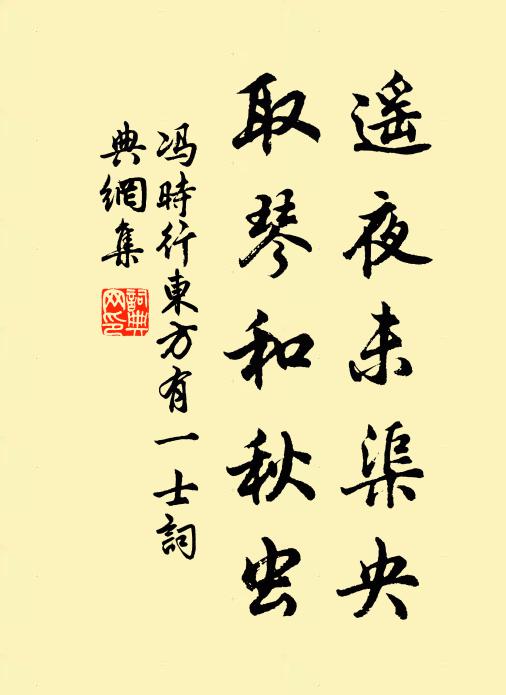 遥夜未渠央
取琴和秋虫
冯時行東方有一士詞
典網集
詞典
网印